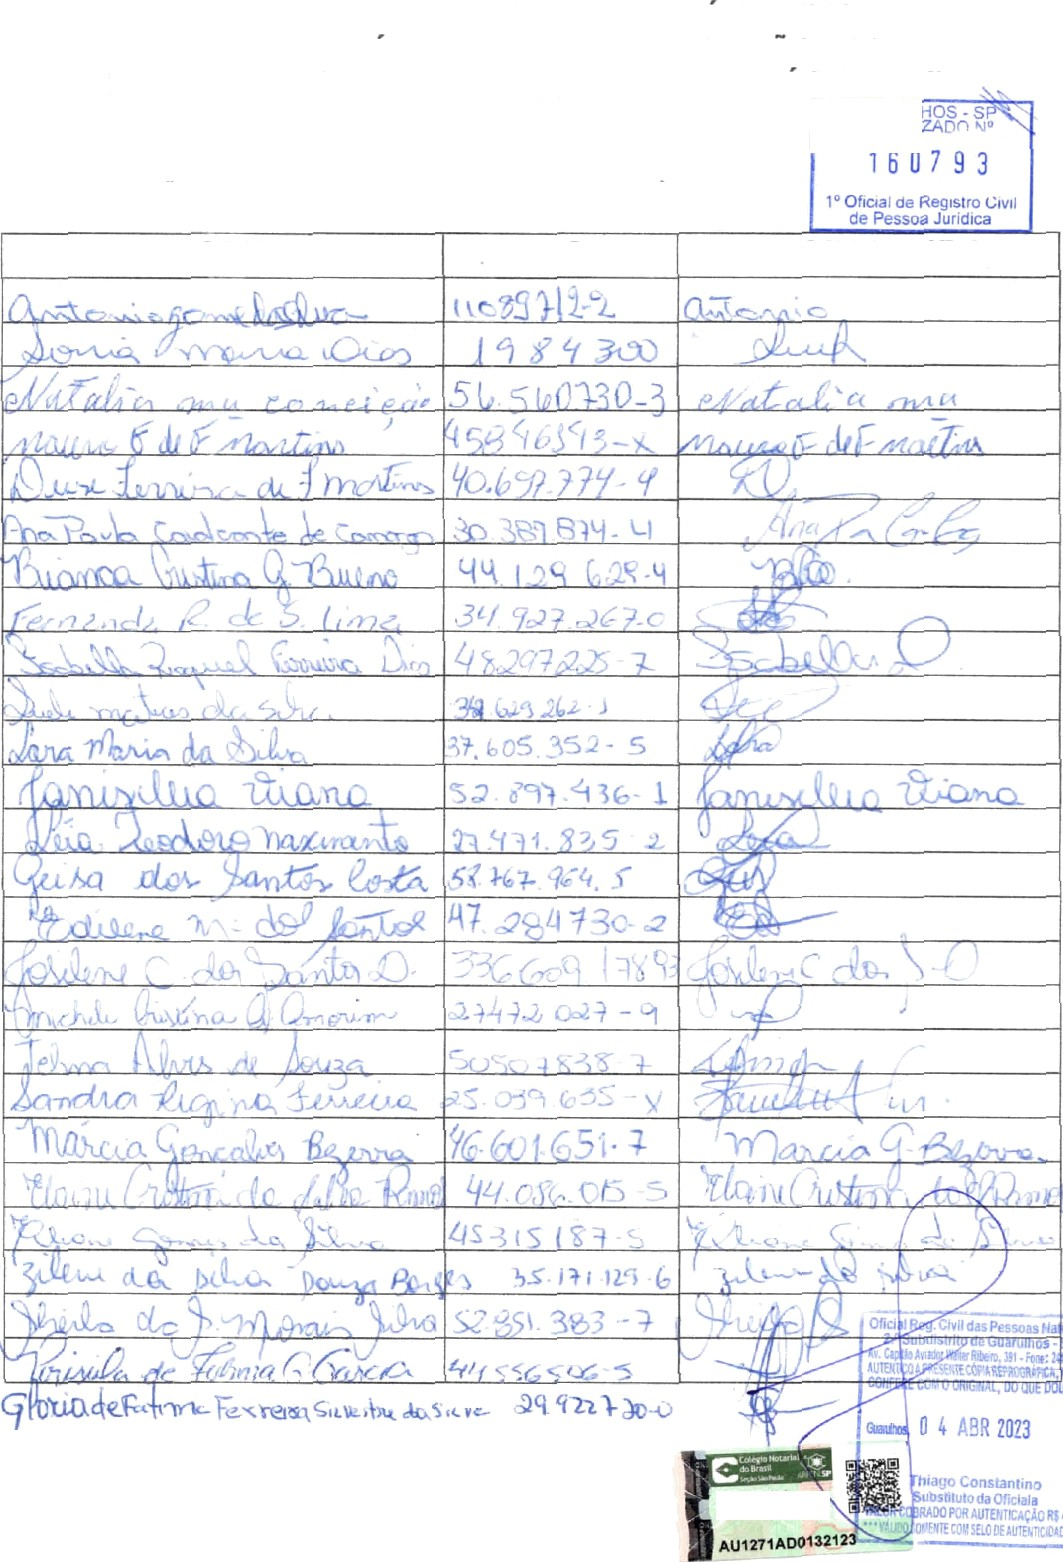 HOS - SP
ZADO Nº
160793
1º Oficial de Registro Civil
de Pessoa Jurídica
Antonio gome da Silva 11089712-2 Antonio
Sonia Maria Dias 1984300
Natalia ma conceição 56.560730-3 Natalia ma
Mauro F de F Martins 45846343-X Mauro F de F Martins
Deise Ferreira de F Martins 40.697.774-4
Ana Paula Cavalcante de Camargo 30.389.874-4 Ana
Bianca Cristina G. Bueno 44.129.629-4
Fernanda R. de S. Lima 34.927.267-0
Isabella Raquel Ferreira Dias 48297225-7 Isabella
Sueli matias da Silva 38.629.262-1
Lara Maria da Silva 37.605.352-5 Lara
Janiscléia Viana 52.897.436-1 Janiscléia Viana
Léia Teodoro Nascimento 27.471.835-2
Geisa dos Santos Costa 58.767.964.5
Edilene M. dos Santos 47.284730-2
Josilene C. dos Santos O. 33660917893 Josilene C dos S O
Michele Cristina G Amorim 27472027-9
Telma Alves de Souza 50507838-7
Sandra Regina Ferreira 25.039.635-X
Márcia Gonçalves Bezerra 46.601.651-7 Marcia G. Bezerra
Elaine Cristina da Silva 44.086.015-5 Elaine Cristina da
Gomes da Silva 45315187-5
Zilene da Silva Souza Borges 35.171.129-6 Zilene da Silva
Sheila da S. Morais Silva 52.851.383-7
Priscila de Fátima G. Garcia 44556506-5
Gloria de Fatima Ferreira Silvestre da Silva 29.922720-0
Oficial Reg. Civil das Pessoas Nat
2º Subdistrito de Guarulhos -
Av. Capitão Aviador Walter Ribeiro, 391 - Fone: 24
AUTENTICO A PRESENTE CÓPIA REPROGRÁFICA,
CONFERE COM O ORIGINAL, DO QUE DOU
Guarulhos, 04 ABR 2023
Thiago Constantino
Substituto da Oficiala
VALOR COBRADO POR AUTENTICAÇÃO R$
***VÁLIDO SOMENTE COM SELO DE AUTENTICIDAD
Colégio Notarial
do Brasil
Seção São Paulo
AU1271AD0132123